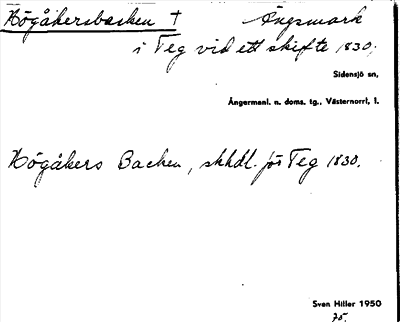 Högåkersbacken † Ängsmark
i Teg vid ett skifte 1830;
Sidensjö sn,
Ångermanl. n. doms. tg., Västernorrl. l.
Högåkers Backen, skhdl. för Teg 1830.
Sven Hitler 1950
75.